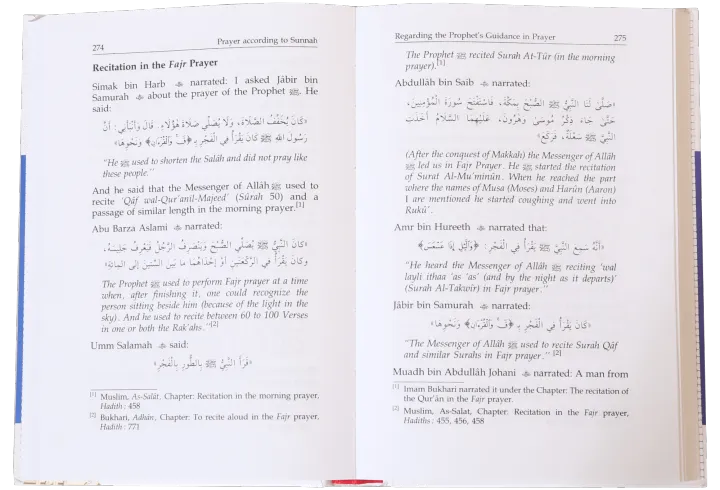 274
Prayer according to Sunnah
Recitation in the Fajr Prayer
Simak bin Harb narrated: I asked Jâbir bin
Samurah about the prayer of the Prophet ﷺ. He
said:
«كَانَ يُخَفِّفُ الصَّلَاةَ، وَلَا يُصَلِّي صَلَاةَ هَؤُلَاءِ. قَالَ وَأَنْبَأَنِي: أَنَّ
رَسُولَ اللهِ ﷺ كَانَ يَقْرَأُ فِي الْفَجْرِ بِـ ﴿قٓ وَالْقُرْآنِ﴾ وَنَحْوِهَا»
"He ﷺ used to shorten the Salâh and did not pray like
these people."
And he said that the Messenger of Allâh ﷺ used to
recite 'Qâf wal-Qur'anil-Majeed' (Sûrah 50) and a
passage of similar length in the morning prayer.[1]
Abu Barza Aslami narrated:
«كَانَ النَّبِيُّ ﷺ يُصَلِّي الصُّبْحَ وَيَنْصَرِفُ الرَّجُلُ فَيَعْرِفُ جَلِيسَهُ،
وكَانَ يَقْرَأُ في الرَّكْعَتَيْنِ أَوْ إِحْدَاهُمَا ما بَيْنَ السِّتِّينَ إلى المِائَةِ»
The Prophet ﷺ used to perform Fajr prayer at a time
when, after finishing it, one could recognize the
person sitting beside him (because of the light in the
sky). And he used to recite between 60 to 100 Verses
in one or both the Rak'ahs."[2]
Umm Salamah said:
«قَرَأَ النَّبِيُّ ﷺ بِالطُّورِ بِالْفَجْرِ»
[1] Muslim, As-Salât, Chapter: Recitation in the morning prayer,
Hadith : 458
[2] Bukhari, Adhân, Chapter: To recite aloud in the Fajr prayer,
Hadith : 771
Regarding the Prophet's Guidance in Prayer
275
The Prophet ﷺ recited Surah At-Tûr (in the morning
prayer).[1]
Abdullâh bin Saib narrated:
«صَلَّى لَنَا النَّبِيُّ ﷺ الصُّبْحَ بِمَكَّةَ، فَاسْتَفْتَحَ سُورَةَ الْمُؤْمِنِينَ،
حَتَّى جَاءَ ذِكْرُ مُوسَى وَهَرُونَ، عَلَيْهِمَا السَّلَامُ أَخَذَتِ
النَّبِيَّ ﷺ سَعْلَةٌ، فَرَكَعَ»
(After the conquest of Makkah) the Messenger of Allâh
ﷺ led us in Fajr Prayer. He ﷺ started the recitation
of Surat Al-Mu'minûn. When he reached the part
where the names of Musa (Moses) and Harûn (Aaron)
I are mentioned he started coughing and went into
Rukû'.
Amr bin Hureeth narrated that:
«أَنَّهُ سَمِعَ النَّبِيَّ ﷺ يَقْرَأُ فِي الْفَجْرِ: ﴿وَالَّيْلِ إِذَا عَسْعَسَ﴾»
"He heard the Messenger of Allâh ﷺ reciting 'wal
layli ithaa 'as 'as' (and by the night as it departs)'
(Surah Al-Takwir) in Fajr prayer."
Jâbir bin Samurah narrated:
«كَانَ يَقْرَأُ فِي الْفَجْرِ بِـ ﴿قٓ وَالْقُرْآنِ﴾ وَنَحْوِهَا»
"The Messenger of Allâh ﷺ used to recite Surah Qâf
and similar Surahs in Fajr prayer." [2]
Muadh bin Abdullâh Johani narrated: A man from
[1] Imam Bukhari narrated it under the Chapter: The recitation of
the Qur'ân in the Fajr prayer.
[2] Muslim, As-Salat, Chapter: Recitation in the Fajr prayer,
Hadiths : 455, 456, 458